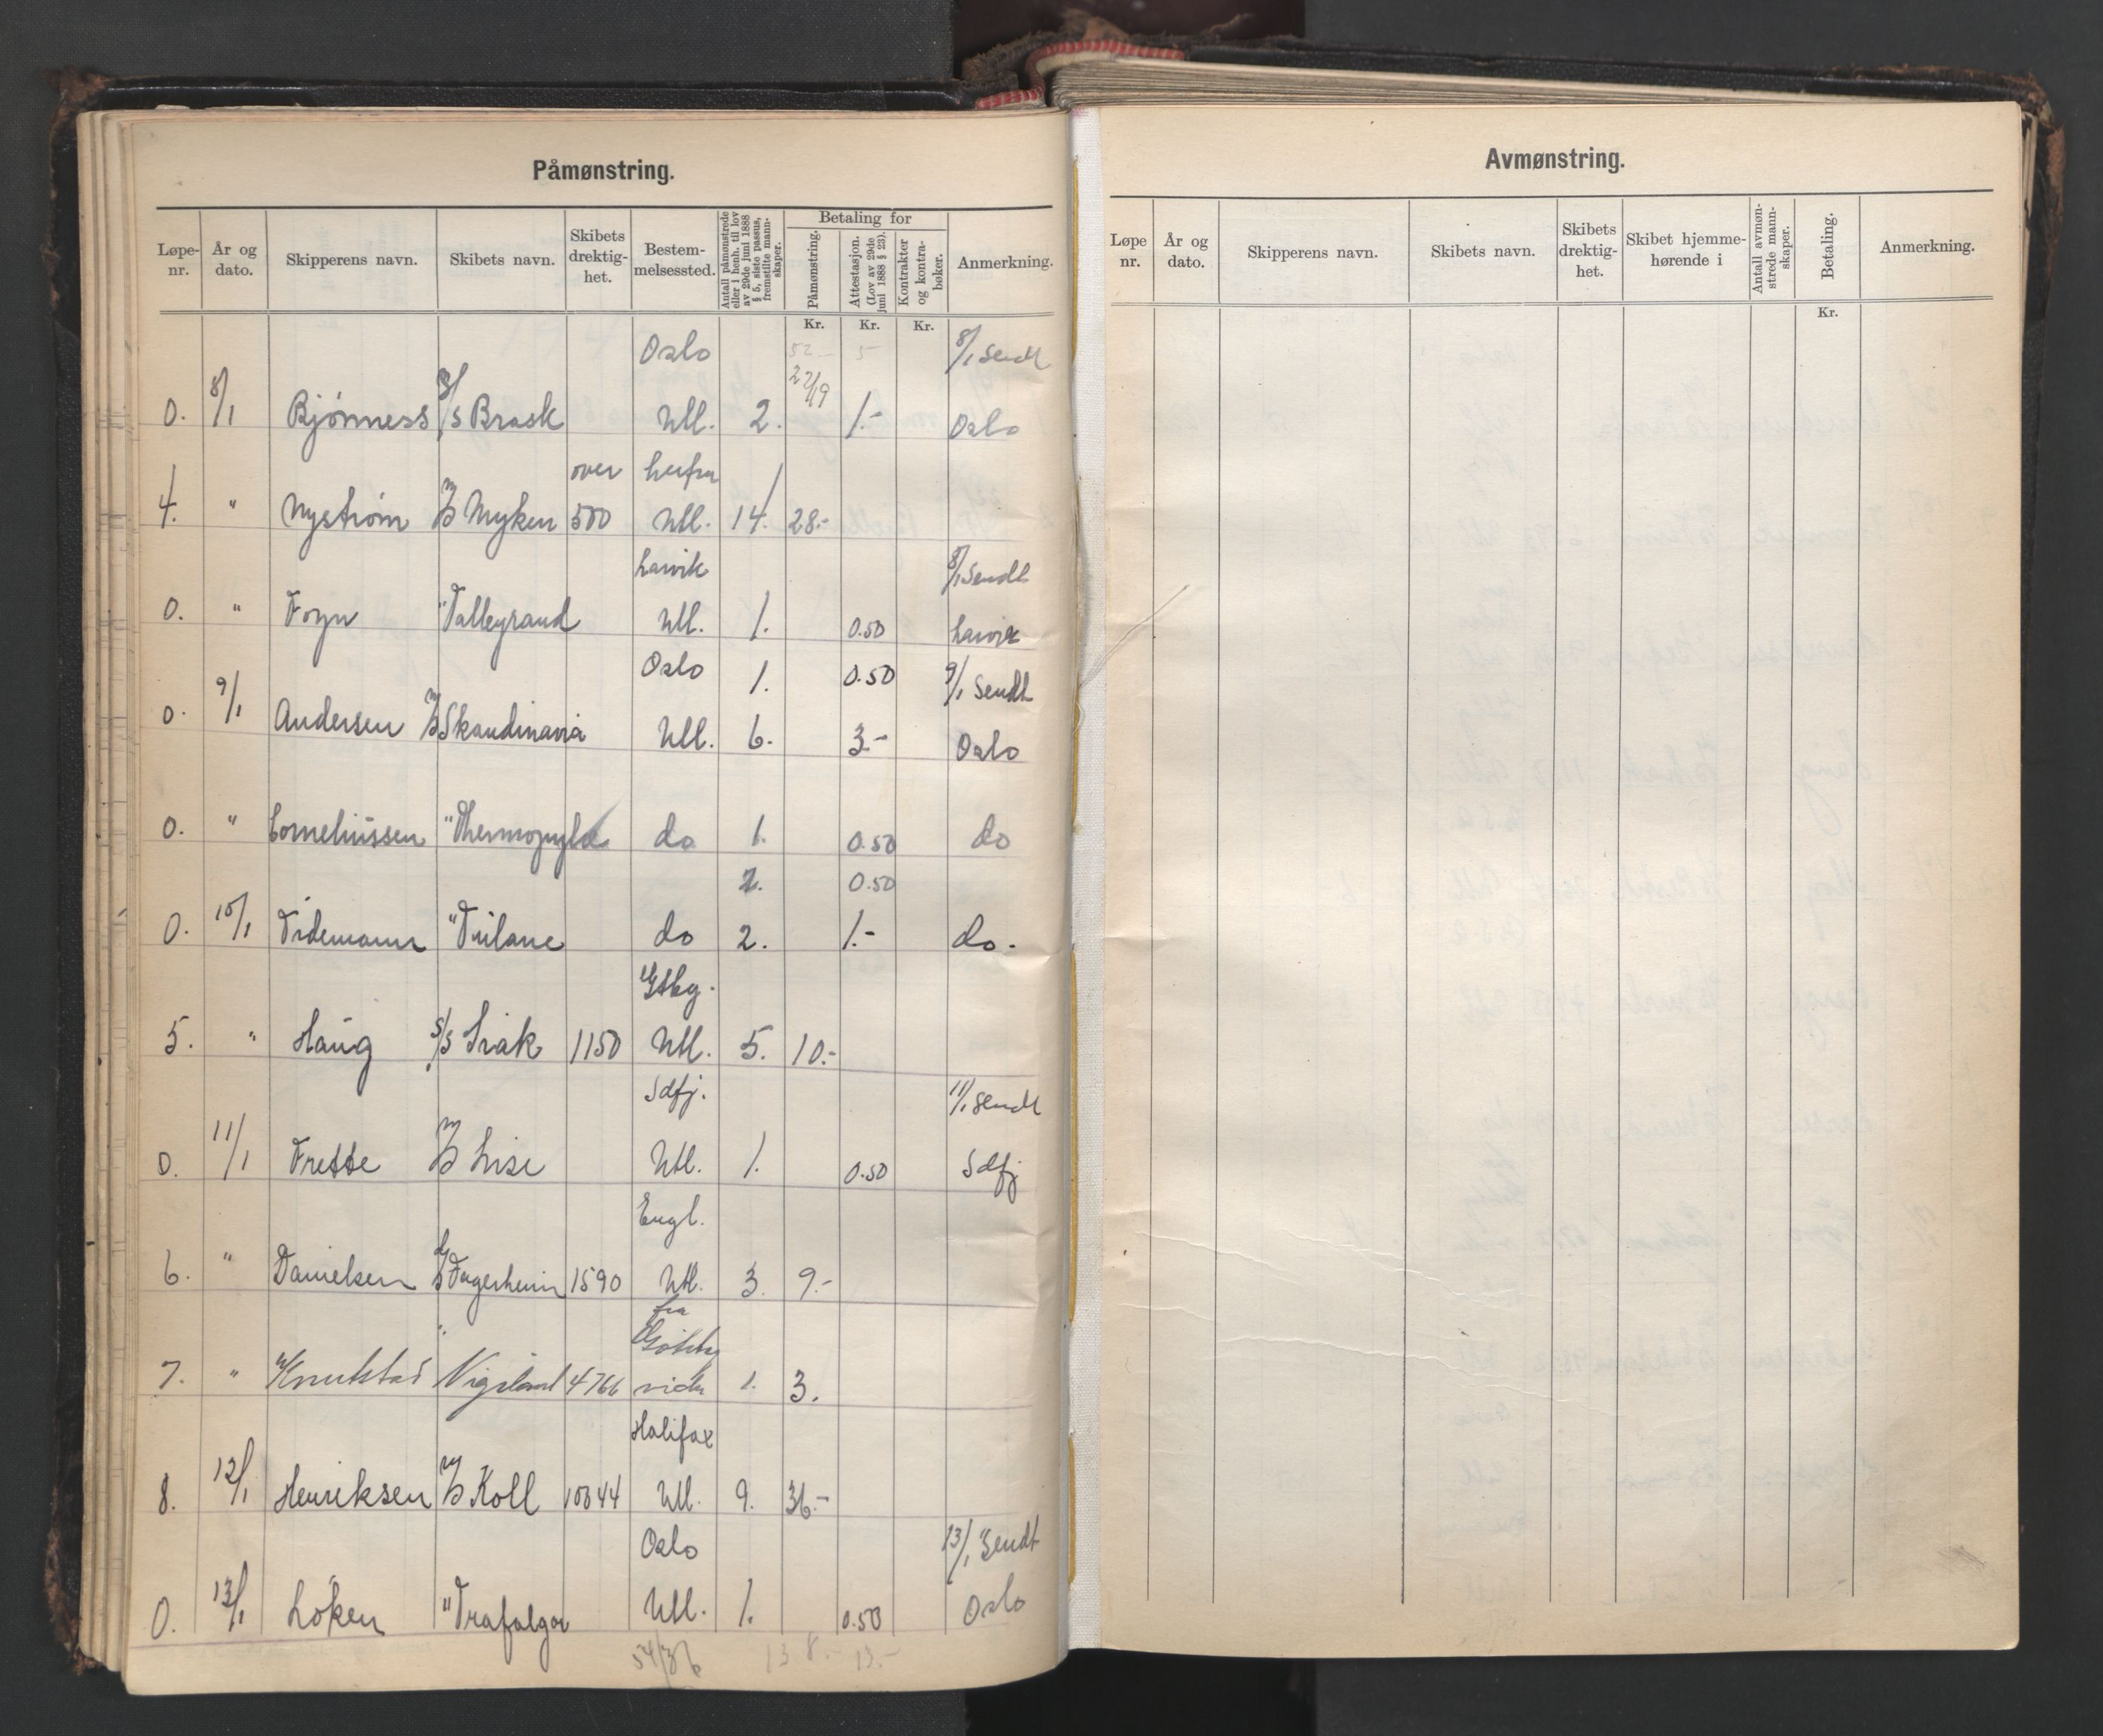 Påmønstring.
Løpe-nr. | År og dato. | Skipperens navn. | Skibets navn. | Skibets drektig-het. | Bestem-melsessted. | Antall påmønstrede eller i henh. til lov av 29de juni 1888 § 5, siste passus, fremstilte mann-skaper. | Betaling for | Anmerkning.
Påmønstring. | Attestasjon. (Lov av 29de juni 1888 § 23). | Kontrakter og kontra-bøker.
Kr. | Kr. | Kr.
Oslo | 52 - | 5 | 8/1 Sendt
27/19
0. | 8/1 | Bjønness | M/S Brask | Utl. | 2. | 1.- | Oslo
over | herfra
4. | " | Nystrøm | M/S Myken | 500 | Utl. | 14. | 28.-
Larvik | 8/1 Sendt
0. | " | Foyn | " Talleyrand | Utl. | 1. | 0.50 | Larvik
Oslo | 1. | 0.50 | 9/1 Sendt
0. | 9/1 | Andersen | M/S Skandinavia | Utl. | 6. | 3.- | Oslo
0. | " | Corneliussen | " Thermopylæ | do | 1. | 0.50 | do
0.50
0. | 10/1 | Tidemann | " Tulane | do | 2. | 1.- | do.
Gtbg.
5. | " | Haug | S/S Irak | 1150 | Utl. | 5. | 10.-
Sdfj. | 11/1 Sendt
0. | 11/1 | Frette | M/S Lise | Utl. | 1. | 0.50 | Sdfj
Engl.
6. | " | Danielsen | Fagerheim | 1590 | Utl. | 3. | 9.-
fra
" | Götbg
7. | " | Knutstad | Vigsland | 4766 | vider | 1. | 3.
Halifax
8. | 12/1 | Henriksen | M/S Koll | 10044 | Utl. | 9. | 36.-
Oslo | 13/1 Sendt
0. | 13/1 | Løken | " Trafalgar | Utl. | 1. | 0.50 | Oslo
54/36 | 138.- | 13.-
Avmønstring.
Løpe nr. | År og dato. | Skipperens navn. | Skibets navn. | Skibets drektig-het. | Skibet hjemme-hørende i | Antall avmøn-strede mann-skaper. | Betaling. | Anmerkning.
Kr.